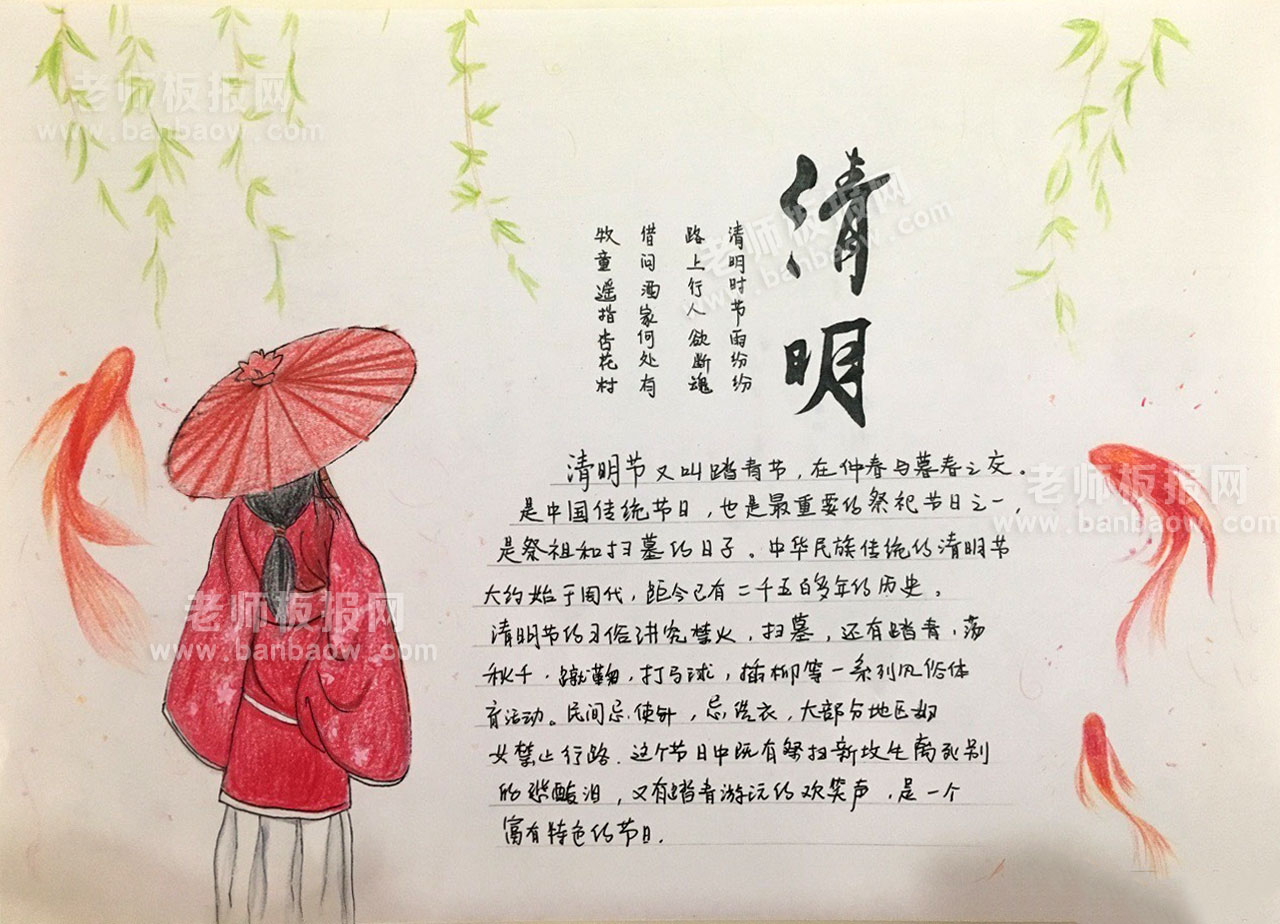 清明
清明时节雨纷纷
路上行人欲断魂
借问酒家何处有
牧童遥指杏花村
清明节又叫踏青节，在仲春与暮春之交。
是中国传统节日，也是最重要的祭祀节日之一，
是祭祖和扫墓的日子。中华民族传统的清明节
大约始于周代，距今已有二千五百多年的历史。
清明节的习俗讲究禁火，扫墓，还有踏青，荡
秋千，蹴鞠，打马球，插柳等一系列风俗体
育活动。民间忌使针，忌洗衣，大部分地区妇
女禁止行路．这个节日中既有祭扫新坟生离死别
的悲酸泪，又有踏青游玩的欢笑声，是一个
富有特色的节日．
老师板报网
www.banbaow.com
老师板报网
www.banbaow.com
老师板报网
www.banbaow.com
老师板报网
www.banbaow.com